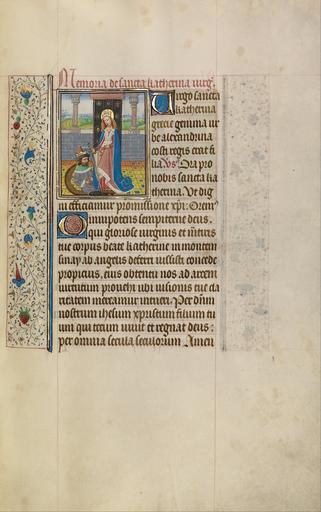 Memoria de sancta katherina virg̃.
Virgo sancta
katherina
grecie gemma ur
be alexandrina
costi regis erat fi
lia. Vs̃. Ora pro
nobis sancta ka
therina. Vt dig
ni efficiamur promissione xp̃i. Orem̃
Omnipotens sempiterne deus,
qui gloriose virginis et m̃ris
tue corpus beate katherine in montem
sinay ab angelis deferri iussisti concede
propicius, eius obtentu nos ad arcem
virtutum provehi ubi visionis tue cla
ritatem mereamur intueri. Per dñm
nostrum ihesum xpristum filium tu
um qui tecum vivit et regnat deus:
per omnia secula seculorum Amen